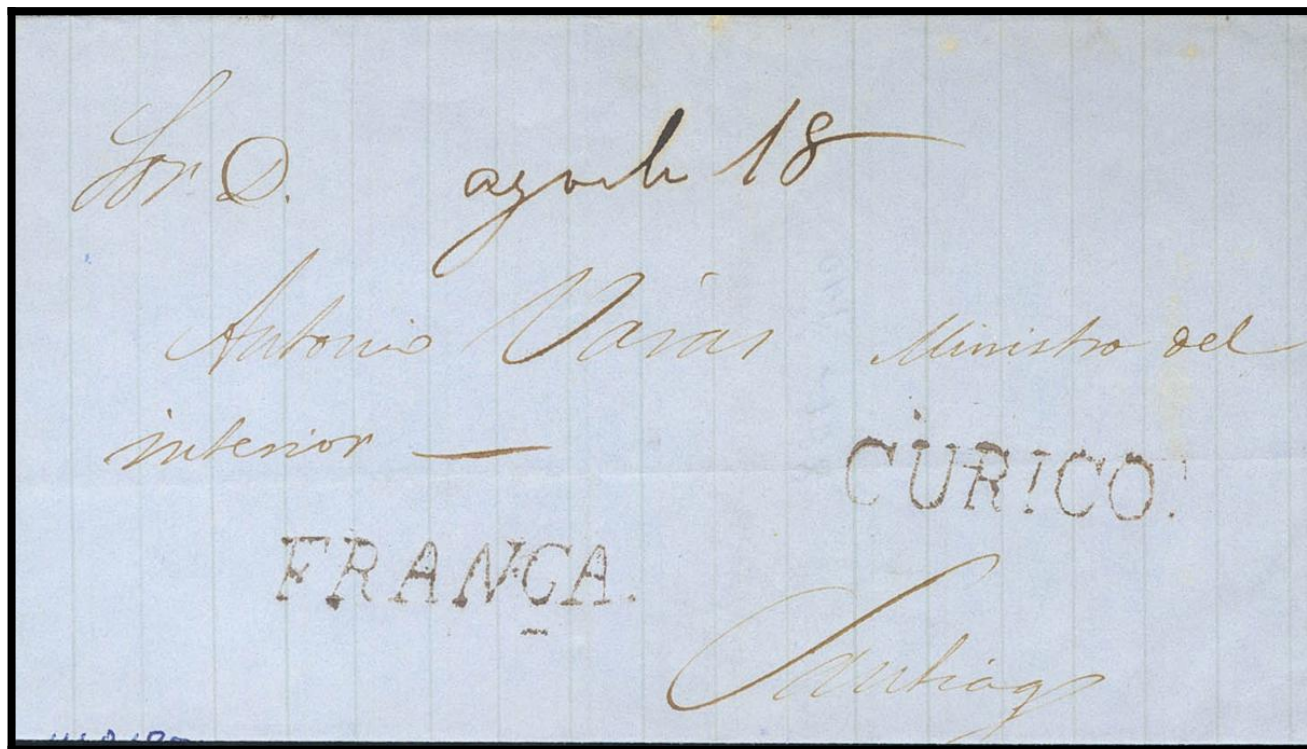 Sor D. agosto 18
Antonio Varas Ministro del
interior —
CURICO.
FRANCA.
Santiago